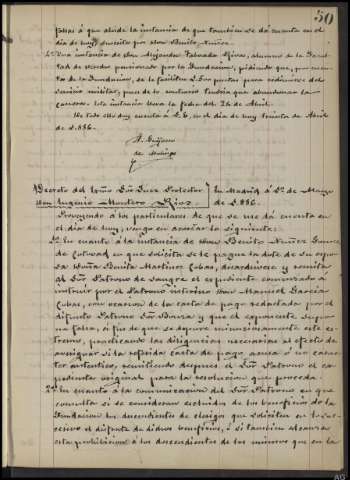 50
falsas á que alude la instancia de que tambien se dá cuenta en el
dia de hoy, suscrita por Don Benito Nuñez.
4º Una instancia de Don Alejandro Taboada Rivas, alumno de la Facul-
tad de Derecho pensionado por la Fundacion, pidiendo que, por cuen-
ta de la Fundacion, se le faciliten 1.500 pesetas para redimirse del
servicio militar, pues de lo contrario tendria que abandonar la
carrera. Esta instancia lleva la fecha del 26 de Abril.
De todo ello doy cuenta á S.E. en el dia de hoy treinta de Abril
de 1.886.
de
Decreto del Ilmo Sñr Juez Protector
Don Eugenio Montero Rios.
En Madrid á 1º de Mayo
de 1.886.
Proveyendo á los particulares de que se me dá cuenta en
el dia de hoy, vengo en acordar lo siguiente:
1º En cuanto á la instancia de Don Benito Nuñez
de en que solicita se le pague la dote de su espo-
sa Doña Benita Martinez Cubas, desardivese y remita
al Sñr Patrono de sangre el espediente comenzado á
instruir por el Patrono interino Don Manuel Garcia
Cubas, con ocasion de la carta de pago redactada por el
difunto Patrono Sñr y que el esponente supo-
ne falsa, á fin de que se depure minuciosamente este es-
tremo, practicando las diligencias necesarias al efecto de
averiguar si la referida carta de pago, tenia ó no carac-
ter autentico, remitiendo despues el Sñr Patrono el es-
pediente original para la resolucion que proceda.
2º En cuanto á la comunicacion del Sñr Patrono en que
consulta si se consideran escluidos de los beneficios de la
Fundacion los descendientes de clerigos que soliciten en
el disfrute de dichos beneficios, ó si tambien alcanza
esta prohibicion á los descendientes de los mismos que en la